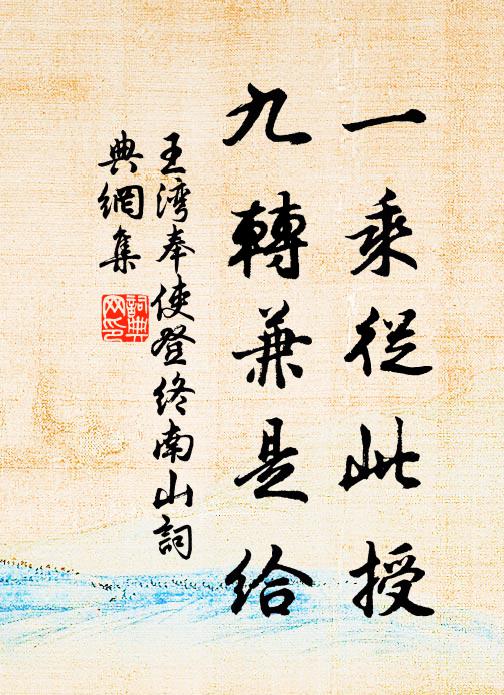 一乘從此授
九轉兼是給
王湾奉使登终南山詞
典網集
詞典
网印